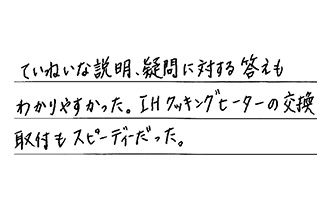 ていねいな説明、疑問に対する答えも
わかりやすかった。IHクッキングヒーターの交換
取付もスピーディーだった。